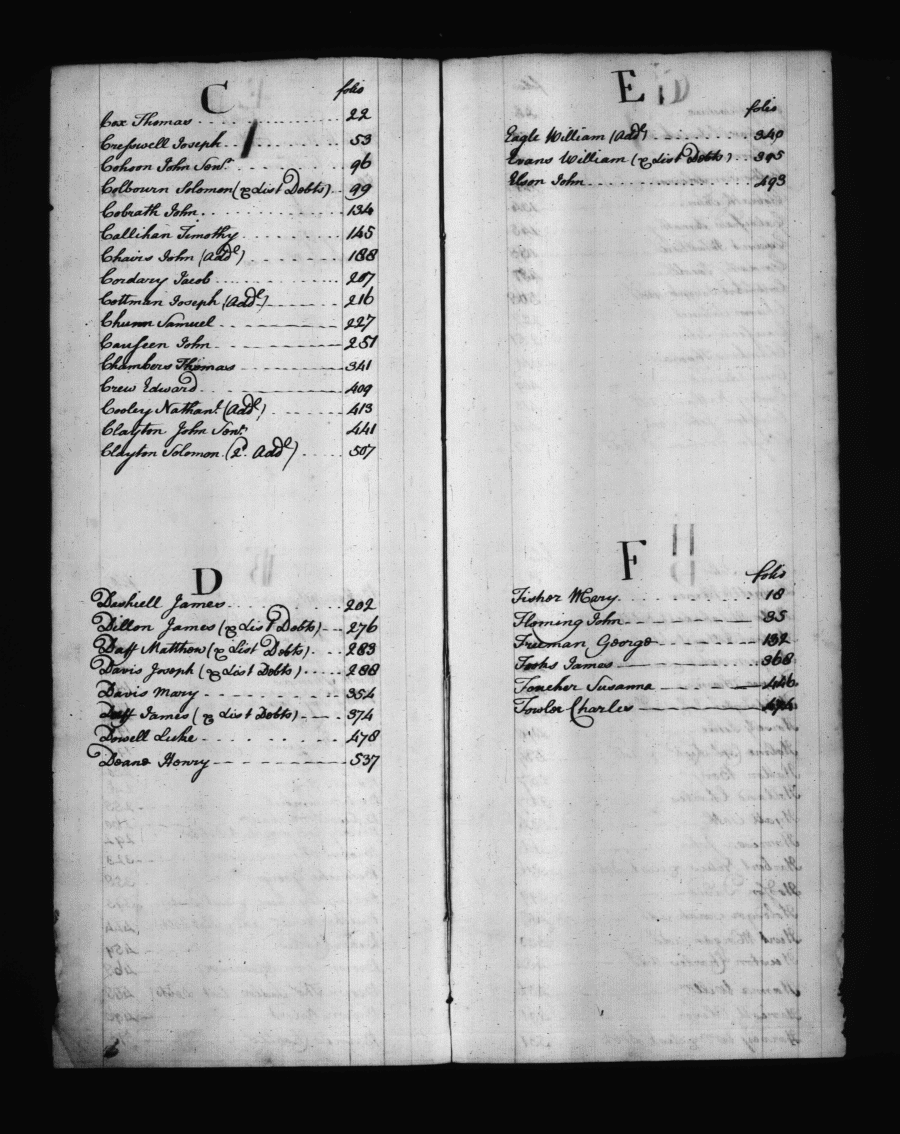 C
folio
Cox Thomas 22
Cresswell Joseph 53
Cohoon John Senr. 96
Colbourn Solomon (& List Debts) 99
Cobrath John 134
Callihan Timothy 145
Chairs John (Addl) 188
Cordary Jacob 207
Cottman Joseph (Addl) 216
Chunn Samuel 227
Causeen John 251
Chambers Thomas 341
Crew Edward 409
Cooley Nathanl. (Addl) 413
Clayton John Senr. 441
Clayton Solomon (2d. Addl) 507
D
Dashiell James 202
Dillon James (& List Debts) 276
Daff Matthew (& List Debts) 283
Davis Joseph (& List Debts) 288
Davis Mary 354
Duff James (& List Debts) 374
Dowell Luke 478
Deane Henry 537
E
folio
Eagle William (Addl) 340
Evans William (& List Debts) 395
Elson John 493
F
folio
Fisher Mary 18
Fleming John 85
Freeman George 132
Fooks James 368
Foucher Susanna 446
Fowler Charles